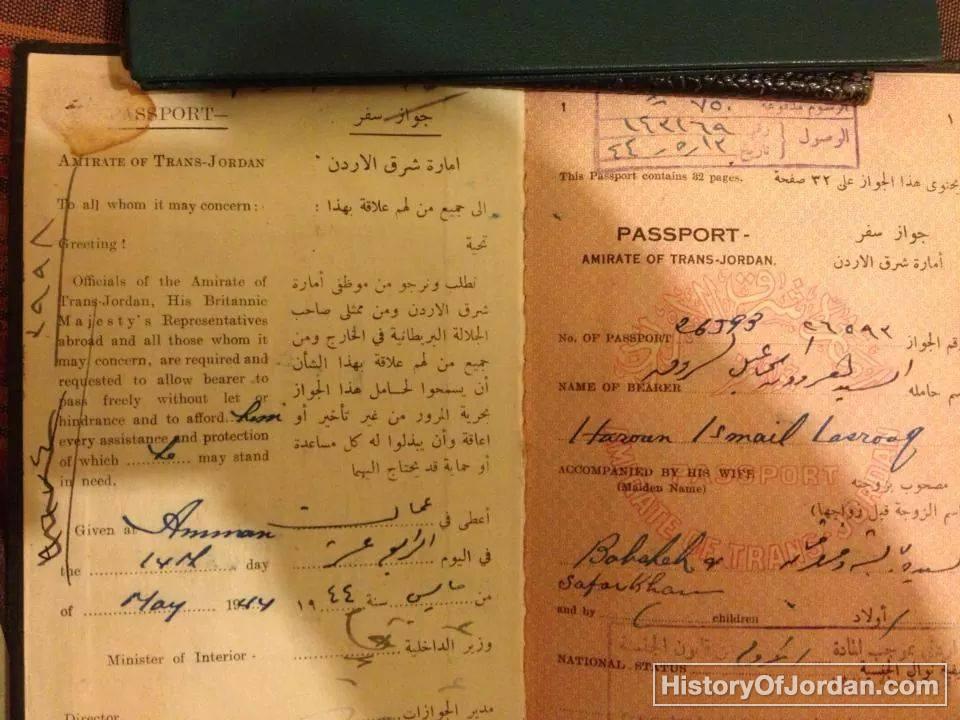 PASSPORT—
جواز سفر
AMIRATE OF TRANS-JORDAN
امارة شرق الاردن
To all whom it may concern:
الى جميع من لهم علاقة بهذا :
Greeting!
تحية
Officials of the Amirate of
Trans-Jordan, His Britannic
Majesty's Representatives
abroad and all those whom it
may concern, are required and
requested to allow bearer to
pass freely without let or
hindrance and to afford him
every assistance and protection
of which he may stand
in need.
نطلب ونرجو من موظفى أمارة
شرق الاردن ومن ممثلى صاحب
الجلالة البريطانية في الخارج ومن
جميع من لهم علاقة بهذا الشأن
أن يسمحوا لحامل هذا الجواز
بحرية المرور من غير تأخير أو
اعاقة وأن يبذلوا له كل مساعدة
أو حماية قد يحتاج اليهما
Given at Amman
أعطى في عمان
the 14th day
في اليوم الرابع عشر
of May 1944
من مايس سنة ١٩٤٤
Minister of Interior -
وزير الداخلية
Director
مدير الجوازات
1
١
الرسوم مدفوعة ٧٥٠
الوصول
رقم ١٤٣١٦٩
تاريخ ٤٤/٥/١٣
This Passport contains 32 pages.
يحتوى هذا الجواز على ٣٢ صفحة
PASSPORT-
جواز سفر
AMIRATE OF TRANS-JORDAN.
أمارة شرق الاردن
No. OF PASSPORT 26593 ٢٦٥٩٣
رقم الجواز
NAME OF BEARER
اسم حامله
Haroun Ismail
ACCOMPANIED BY HIS WIFE
(Maiden Name)
مصحوب بزوجته
(اسم الزوجة قبل زواجها)
Safarkhan
and by children
أولاد
NATIONAL STATUS
PASSPORT
HistoryOfJordan.com